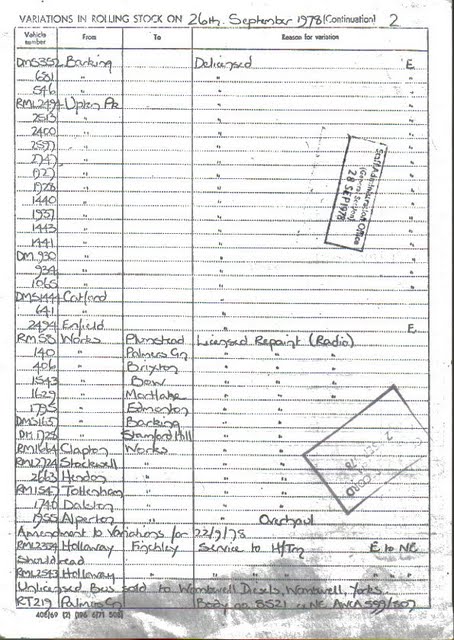 VARIATIONS IN ROLLING STOCK ON 26th September 1978 (Continuation) 2
Vehicle number From To Reason for variation
DMS352 Barking Delicensed E
681 " "
546 " "
RML2494 Upton Pk "
2513 " "
2400 " "
2597 " "
2747 " "
1927 " "
1928 " "
1440 " "
1937 " "
1443 " "
1441 " "
DM 930 " "
934 " "
1065 " "
DMS1444 Catford "
641 " "
2494 Enfield " E
Staff Administration Office
28 SEP 1978
RM58 Works Plumstead Licensed Repaint (Radio)
140 " Palmers Gn " " "
406 " Brixton " " "
1543 " Bow " "
1629 " Mortlake " "
1795 " Edmonton " "
DMS165 " Barking " "
DM 1725 " Stamford Hill " "
RM1664 Clapton Works "
RML2724 Stockwell " "
2663 Hendon " "
RM1547 Tottenham " "
1740 Dalston " "
1955 Alperton " " Overhaul
Amendment to Variations for 22/9/78
RML2334 Holloway Finchley Service to H/Trg E to NE
Should read
RML2543 Holloway " " " " " "
Unlicensed Bus sold to Wombwell Diesels, Wombwell, Yorks.
RT219 Palmers Gn Body no 8521